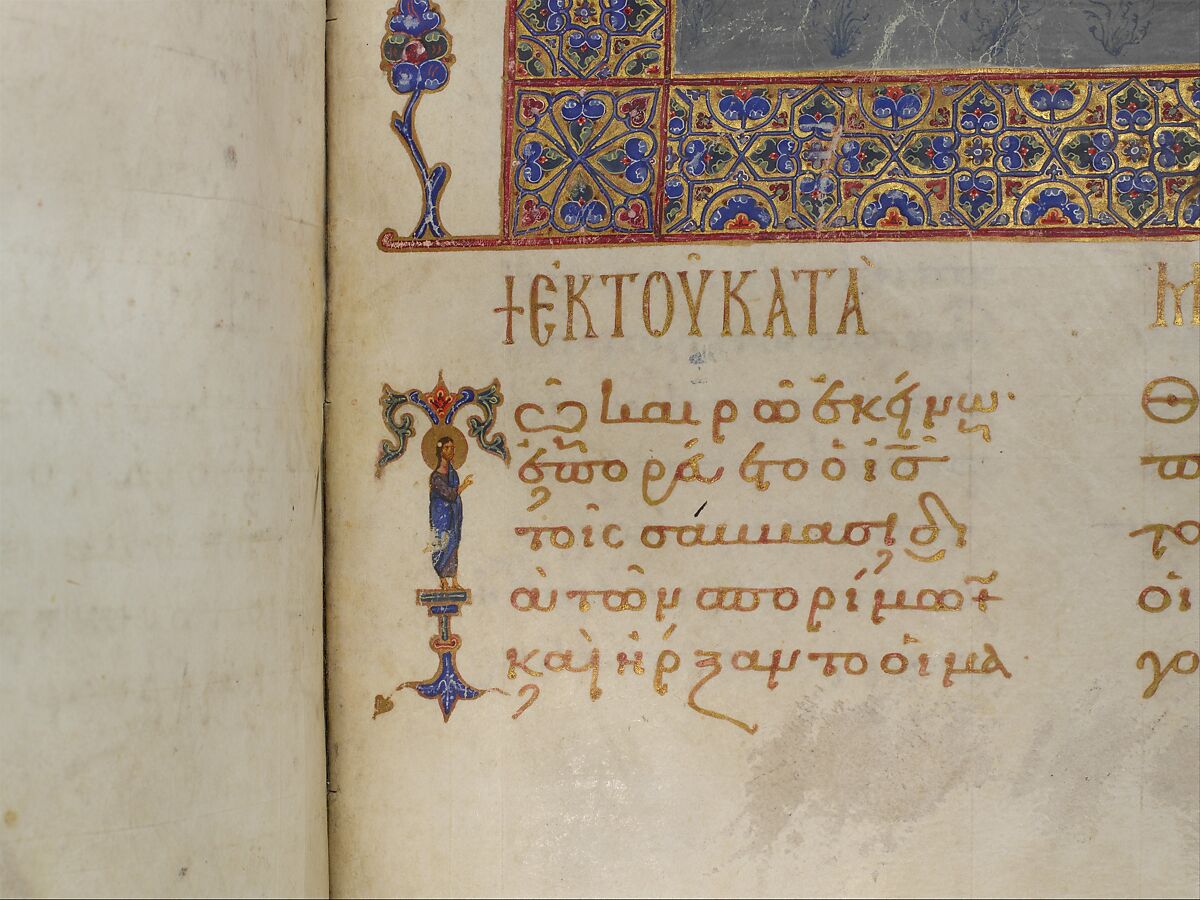 + ἐκ τοῦ κατὰ Μ
Τῷ καιρῷ ἐκείνῳ·
ἐπορεύετο ὁ ι̅ς̅
τοῖς σάββασι δι
ὰ τῶν σπορίμων
καὶ ἤρξαντο οἱ μα
Θ
π
το
οἱ
γο